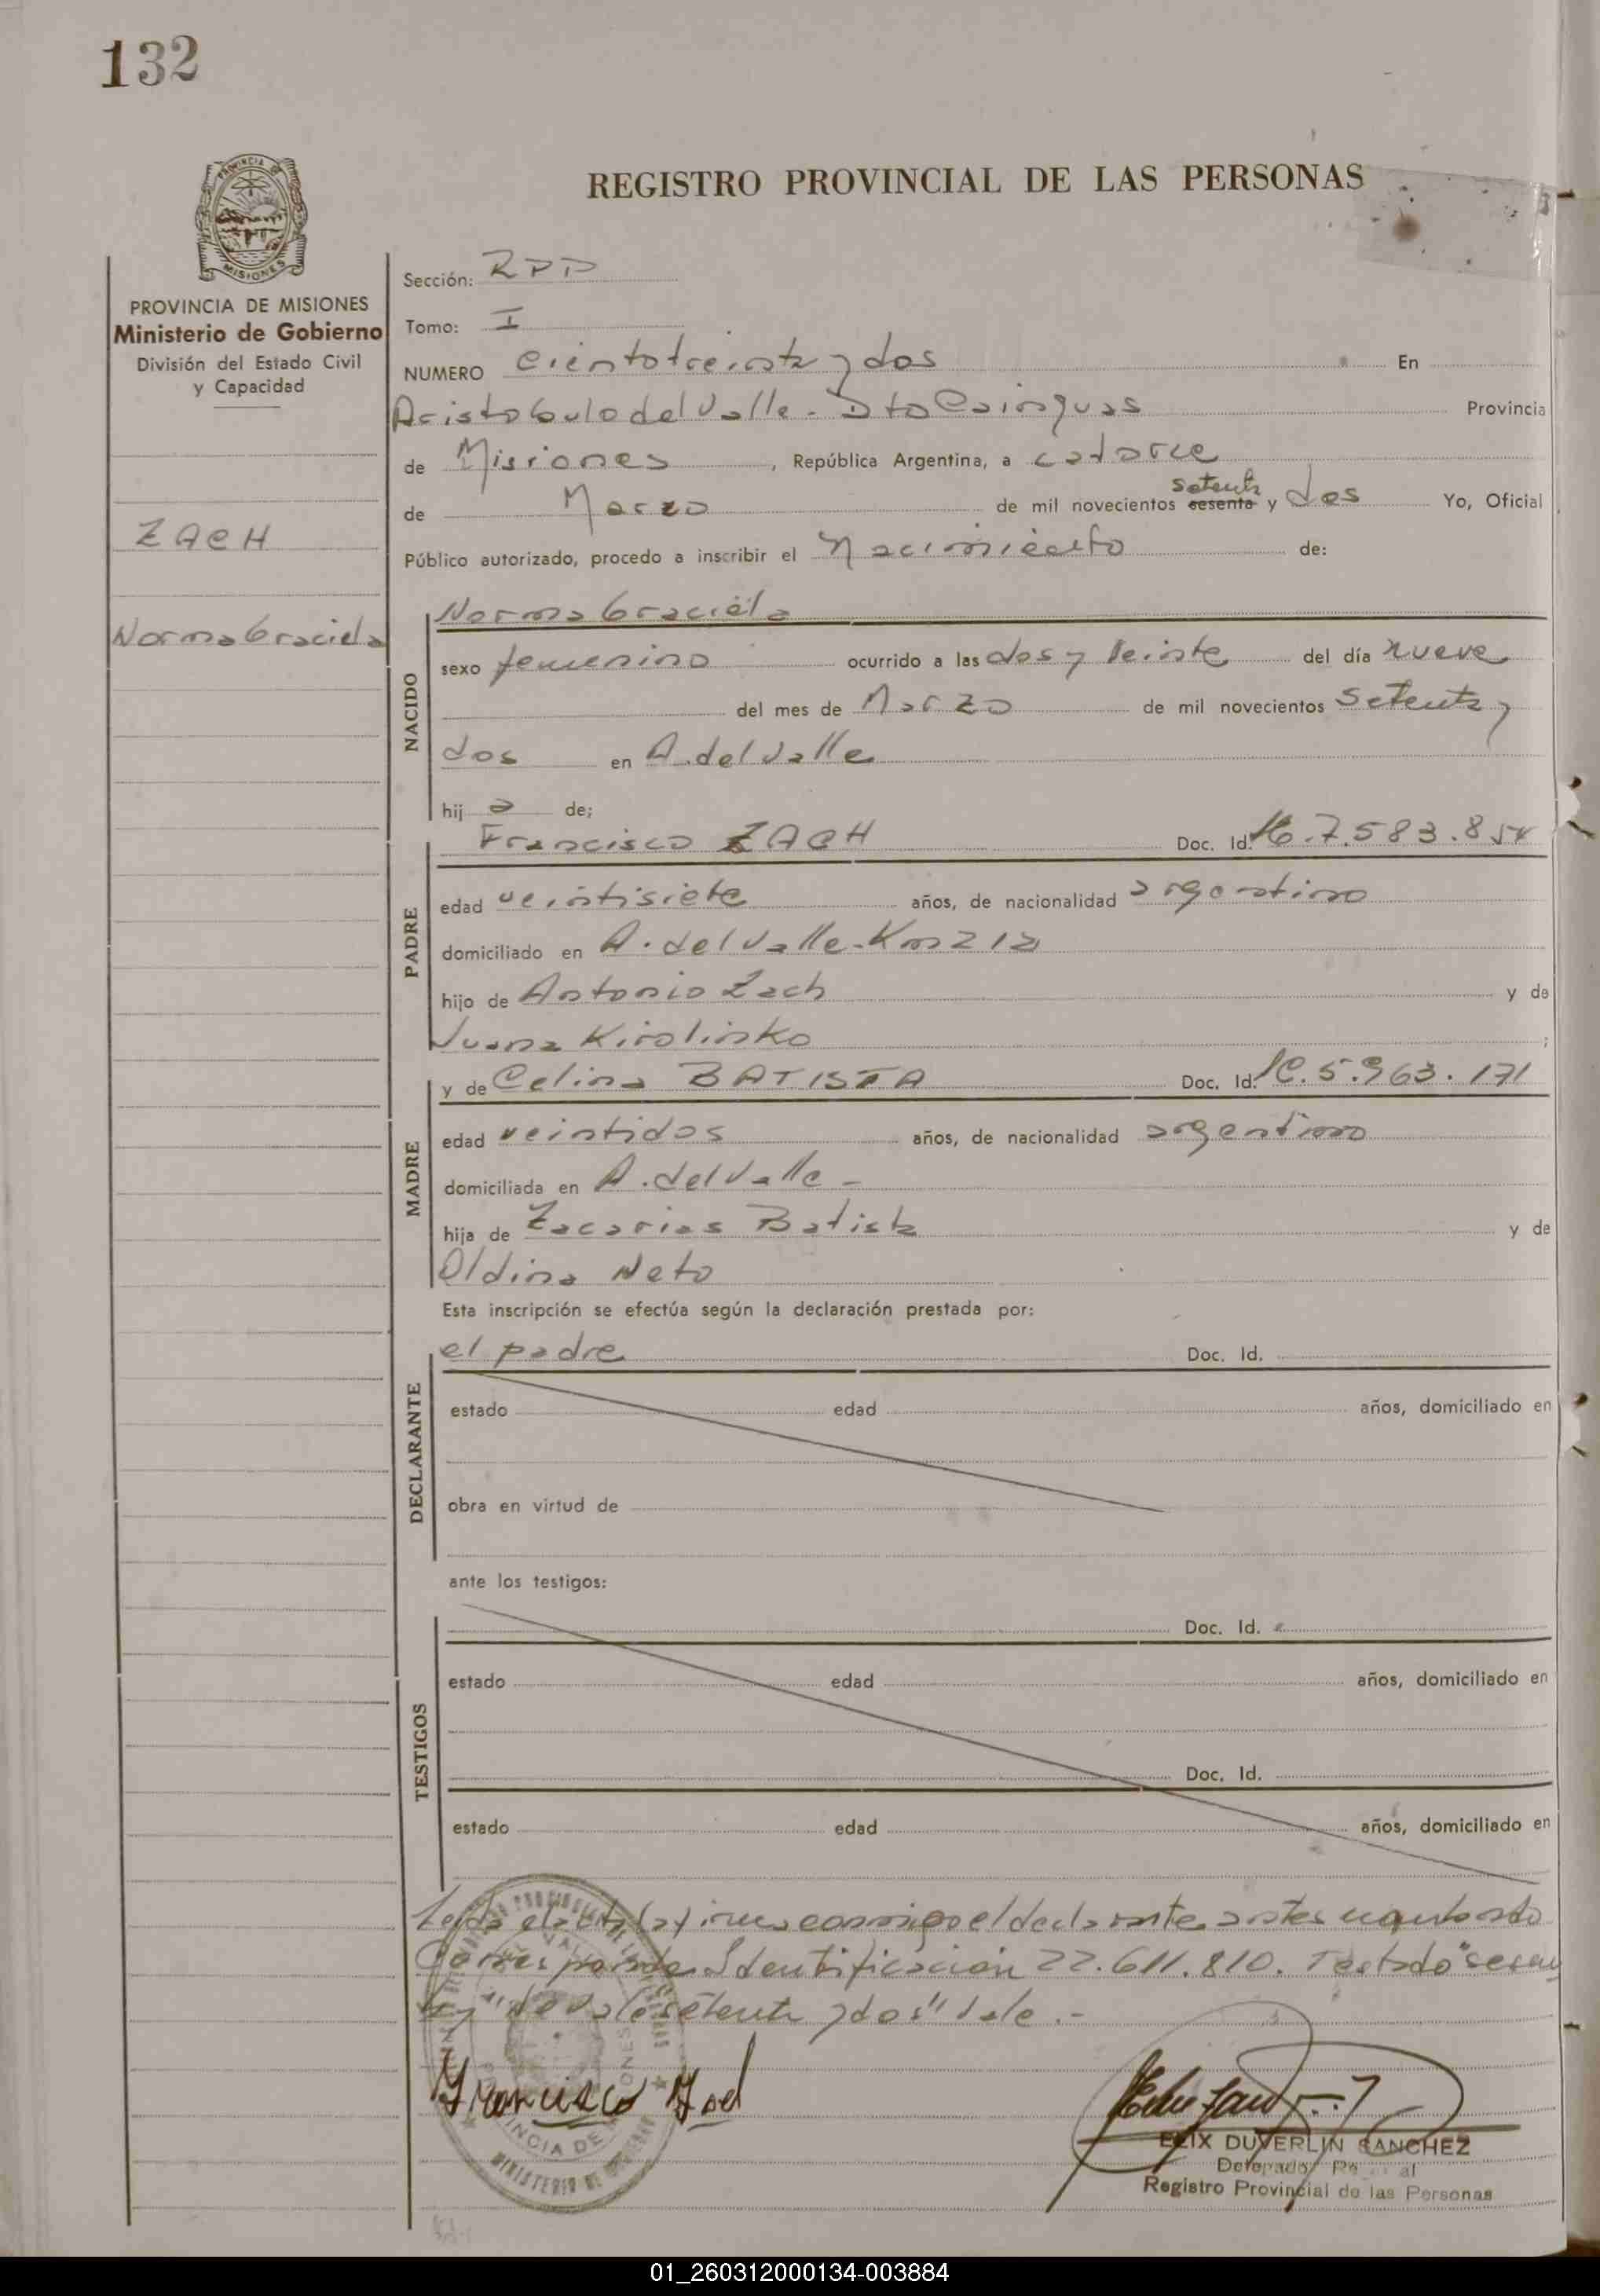 132
REGISTRO PROVINCIAL DE LAS PERSONAS
PROVINCIA DE MISIONES
Ministerio de Gobierno
División del Estado Civil
y Capacidad
ZACH
Norma Graciela
Sección: RPP
Tomo: I
NUMERO ciento treinta y dos En
Aristobulo del Valle - Dto Cainguas Provincia
de Misiones, República Argentina, a catorce
setenta
de Marzo de mil novecientos sesenta y dos Yo, Oficial
Público autorizado, procedo a inscribir el Nacimiento de:
NACIDO
Norma Graciela
sexo femenino ocurrido a las dos y veinte del día nueve
del mes de Marzo de mil novecientos setenta y
dos en A. del Valle
hij a de;
PADRE
Francisco ZACH Doc. Id. 7.583.854
edad veintisiete años, de nacionalidad argentino
domiciliado en A. del Valle - Km 212
hijo de Antonio Zach y de
Juana Kirolinko ;
MADRE
y de Celina BATISTA Doc. Id. LC. 5.963.171
edad veintidos años, de nacionalidad argentino
domiciliada en A. del Valle -
hija de Zacarias Batista y de
Oldina Neto
Esta inscripción se efectúa según la declaración prestada por:
DECLARANTE
el padre Doc. Id.
estado edad años, domiciliado en
obra en virtud de
ante los testigos:
TESTIGOS
Doc. Id.
estado edad años, domiciliado en
Doc. Id.
estado edad años, domiciliado en
Leida el acta la firma conmigo el declarante antes nombrado
Corresponde Identificación 22.611.810. Testado "sesen
ta y" no vale setenta y dos" vale.-
Francisco Zach
ELIX DUVERLIN SANCHEZ
Delegado
Registro Provincial de las Personas
PROVINCIA DE MISIONES
MINISTERIO DE GOBIERNO
01_260312000134-003884